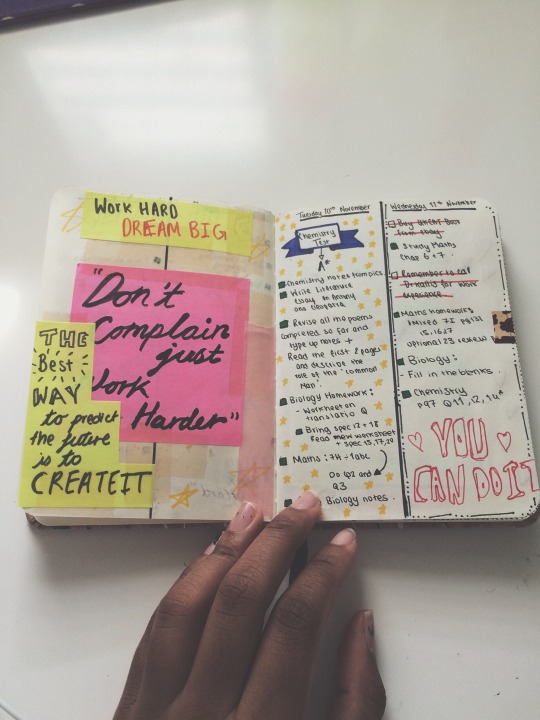 WORK HARD
DREAM BIG
"Don't
Complain
just
Work
Harder"
THE
Best
WAY
to predict
the future
is to
CREATE IT
Tuesday 10th November
Chemistry
Test
A*
Chemistry notes
Write Literature
Essay on Antony
and cleopatra
Revise all the poems
completed so far and
type up notes +
Read the first 2 pages
and describe the
role of the 'common
Man'
Biology Homework:
- Worksheet on
translatio Q
Bring spec 12 + 18
Read worksheet
+ spec 15, 17, 20
Maths: 7H → 1abc
Do Q2 and
Q3
Biology notes.
Wednesday 11th November
Buy
Study Maths
Chap 6 + 7.
Remember to
for work
experience
Maths Homework
Mixed 7I pg
15, 16, 17
optional 23 review
Biology:
Fill in the blanks.
Chemistry
p97 Q11, 12, 14*
YOU
CAN DO IT